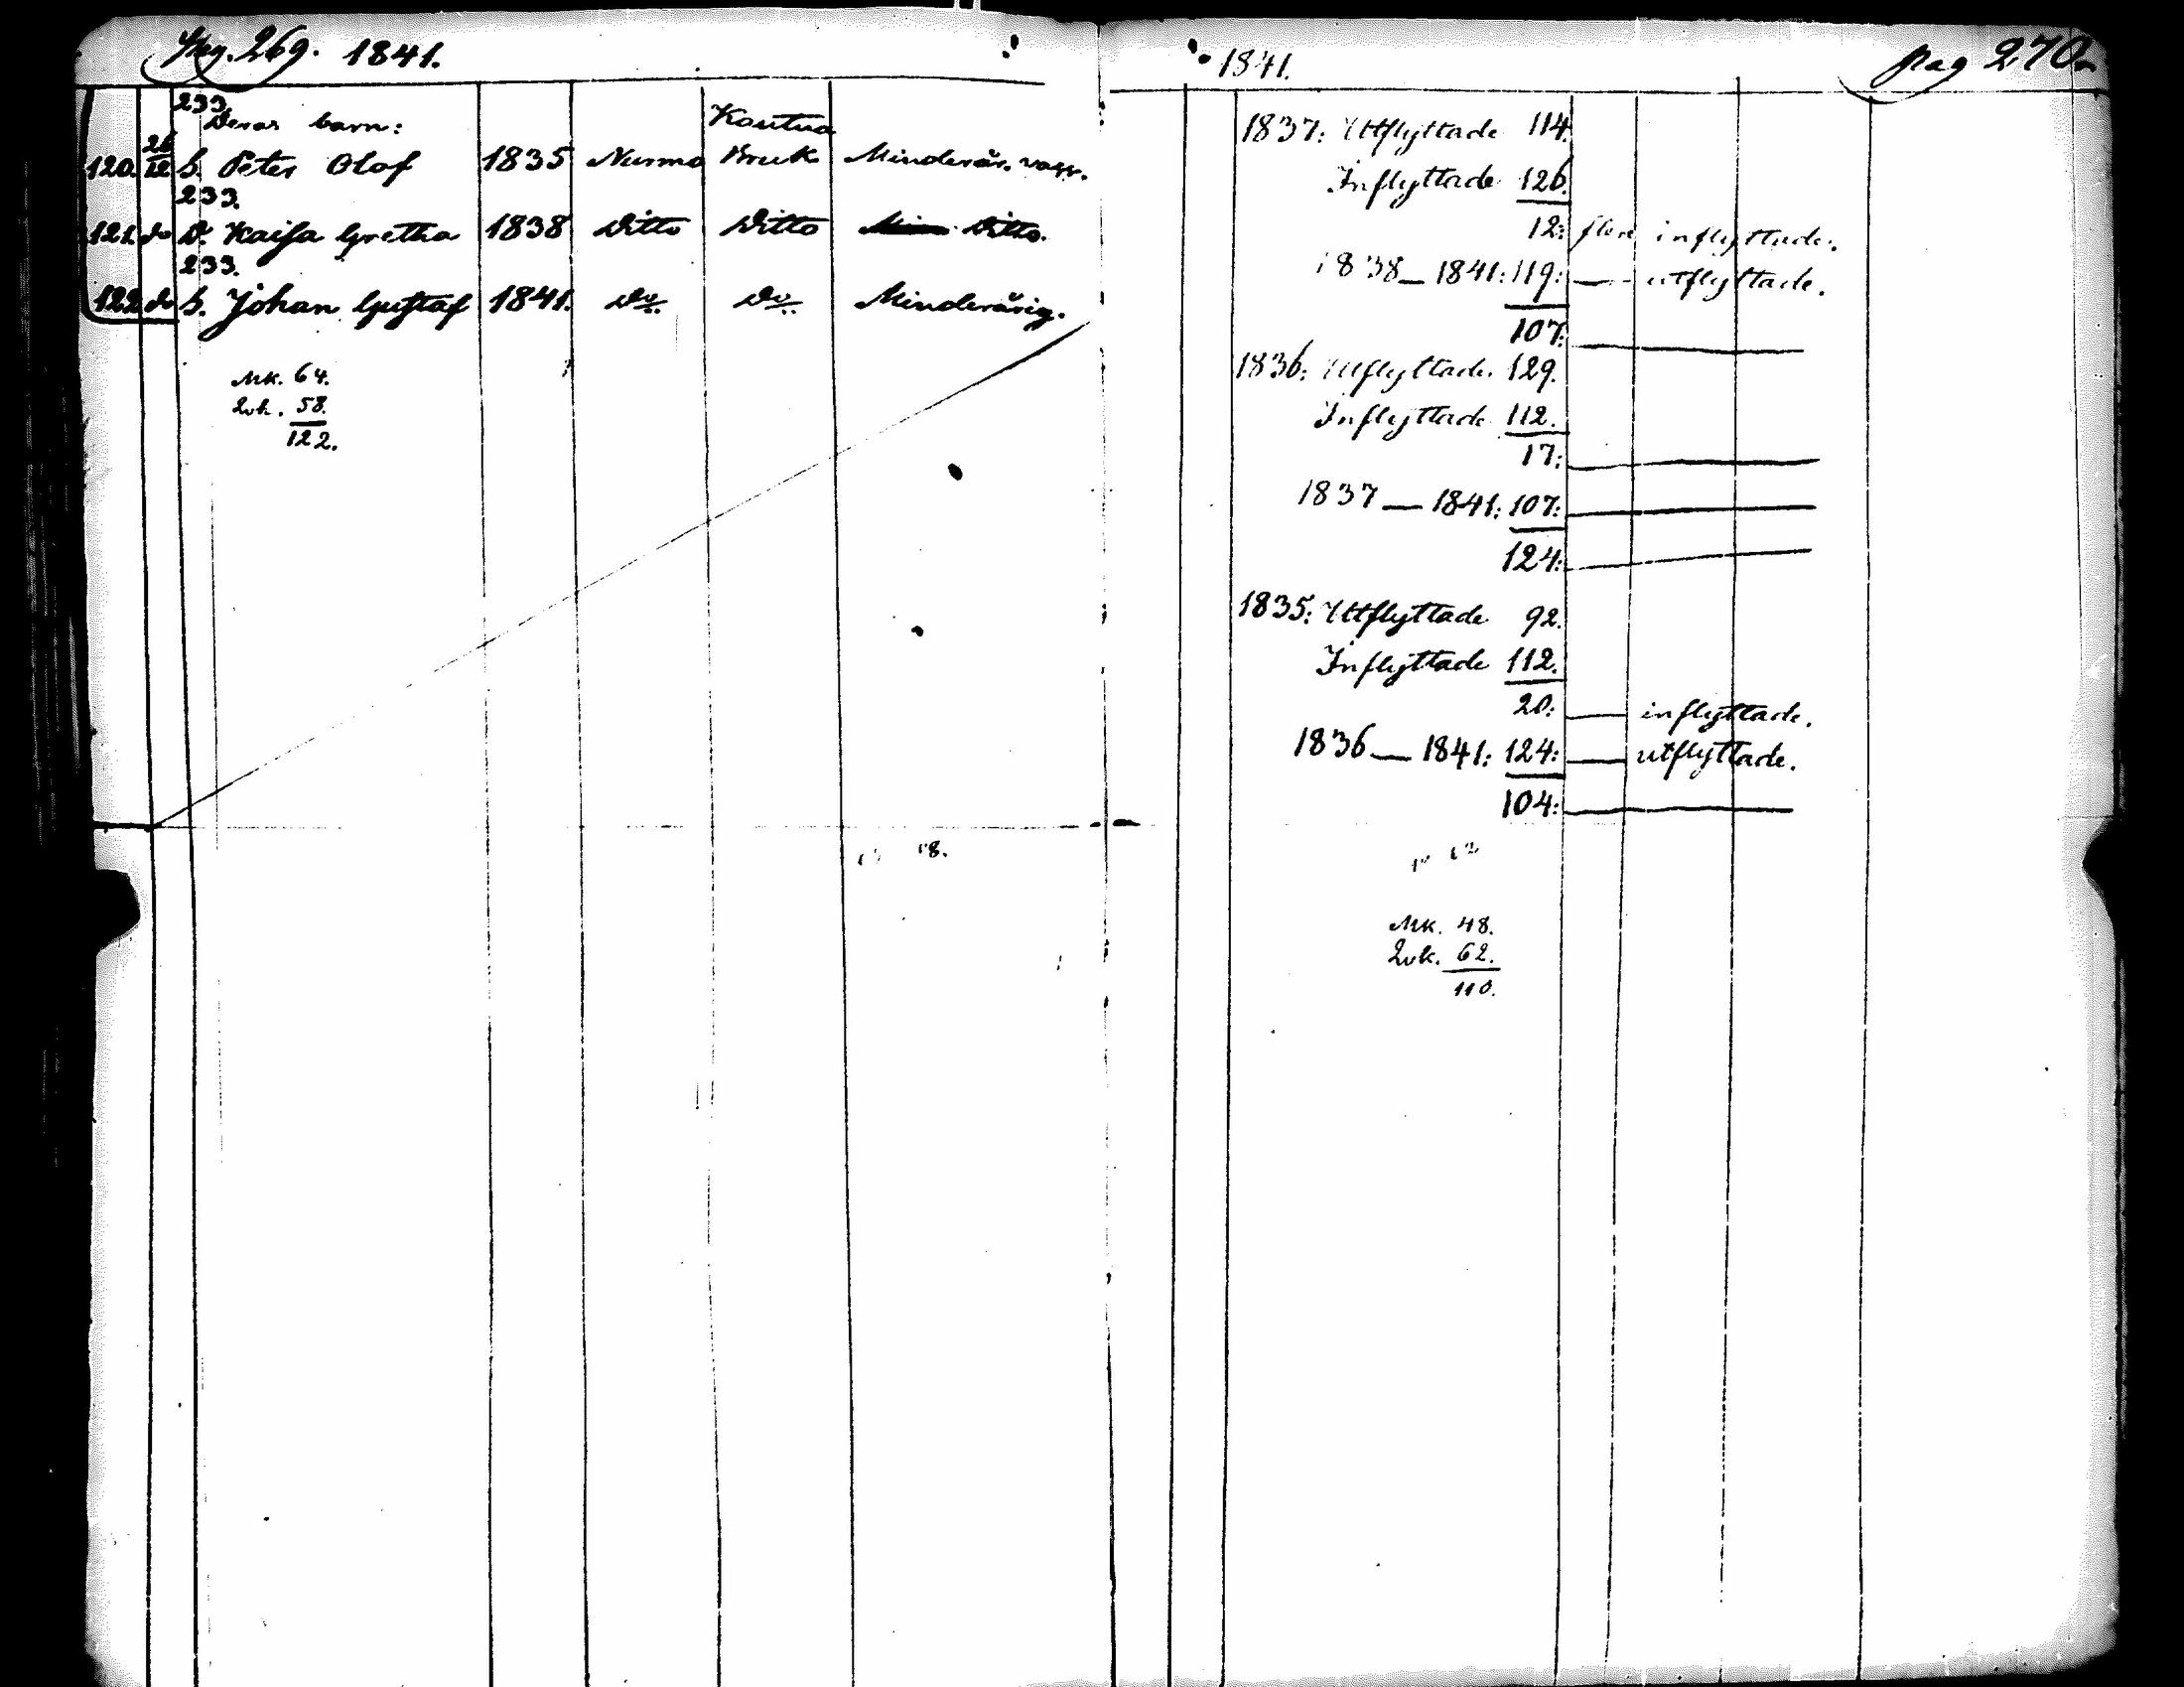 Pag. 269. 1841.
233.
Deras barn: Kautua
120. 26/12 S. Peter Olof 1835 Nurmo Bruk Minderår. vacc.
233.
121. do D. Kaisa Gretha 1838 Ditto Ditto Ditto.
233.
122. do S. Johan Gustaf 1841. Do. Do. Minderårig.
Mk. 64.
Qvk. 58.
122.
1841. pag 270.
1837: Utflyttade 114.
Inflyttade 126.
12: flere inflyttade.
1838 — 1841: 119: — utflyttade.
107: —
1836: Utflyttade. 129.
Inflyttade 112.
17: —
1837 — 1841: 107: —
124: —
1835: Utflyttade 92.
Inflyttade 112.
20: — inflyttade.
1836 — 1841: 124: — utflyttade.
104: —
Mk. 48.
Qvk. 62.
110.